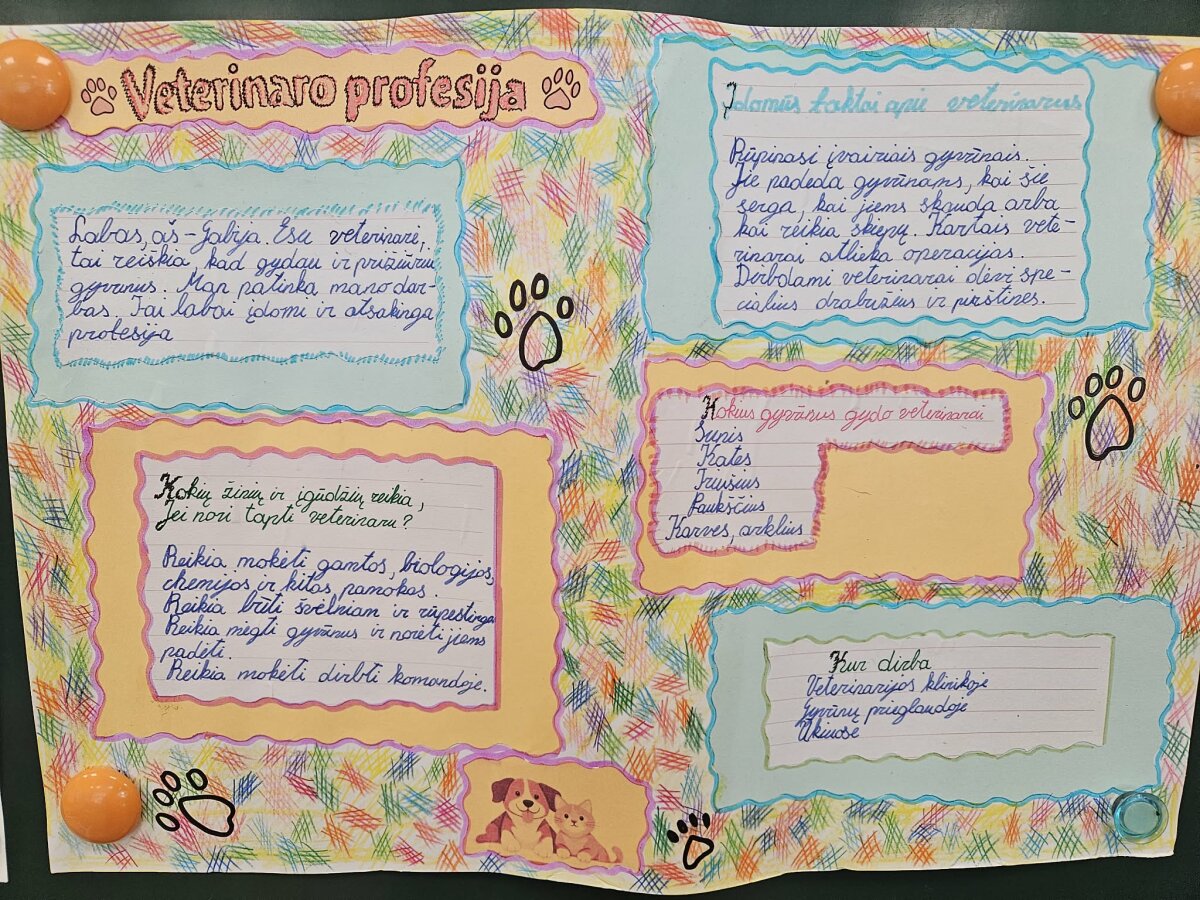 Veterinaro profesija
Labas, aš - Gabija. Esu veterinarė,
tai reiškia, kad gydau ir prižiūriu
gyvūnus. Man patinka mano dar-
bas. Tai labai įdomi ir atsakinga
profesija
Kokių žinių ir įgūdžių reikia,
Jei nori tapti veterinaru?
Reikia mokėti gamtos, biologijos,
chemijos ir kitas pamokas.
Reikia būti švelniam ir rūpestinga
Reikia mėgti gyvūnus ir norėti jiems
padėti.
Reikia mokėti dirbti komandoje.
Įdomūs faktai apie veterinarus
Rūpinasi įvairiais gyvūnais.
Jie padeda gyvūnams, kai šie
serga, kai jiems skauda arba
kai reikia skiepų. Kartais vete-
rinarai atlieka operacijas.
Dirbdami veterinarai dėvi spe-
cialius drabužius ir pirštines.
Kokius gyvūnus gydo veterinarai
Šunis
Kates
Triušius
Paukščius
Karves, arklius
Kur dirba
Veterinarijos klinikoje
Gyvūnų prieglaudoje
Ūkiuose